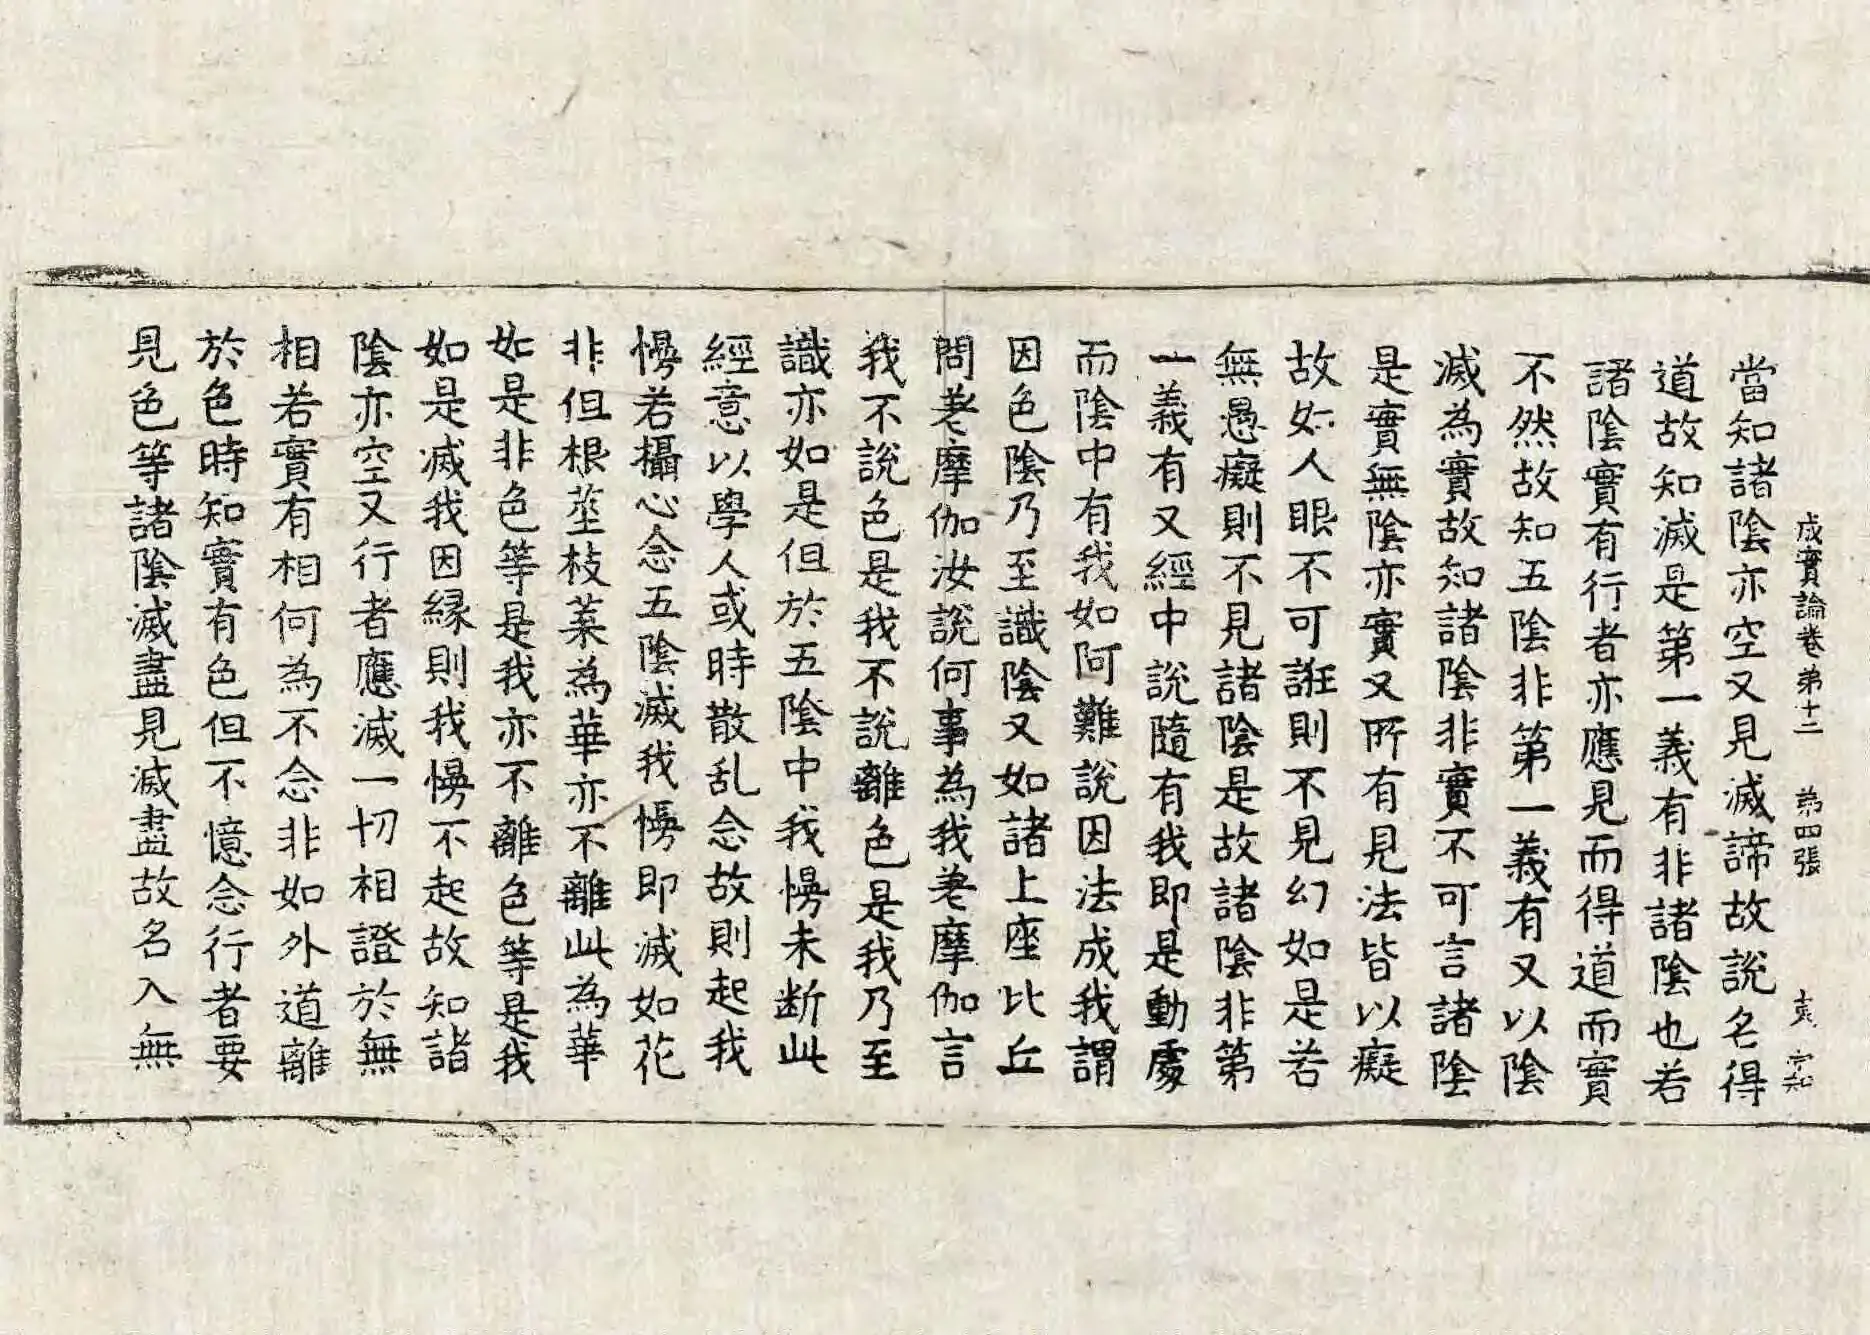 成實論卷第十二　第四張　宇知
當知諸陰亦空又見滅諦故說名得
道故知滅是第一義有非諸陰也若
諸陰實有行者亦應見而得道而實
不然故知五陰非第一義有又以陰
滅為實故知諸陰非實不可言諸陰
是實無陰亦實又所有見法皆以癡
故如人眼不可誑則不見幻如是若
無愚癡則不見諸陰是故諸陰非第
一義有又經中說隨有我即是動處
而陰中有我如阿難說因法成我謂
因色陰乃至識陰又如諸上座比丘
問差摩伽汝說何事為我差摩伽言
我不說色是我不說離色是我乃至
識亦如是但於五陰中我慢未断此
經意以學人或時散乱念故則起我
慢若攝心念五陰滅我慢即滅如花
非但根莖枝葉為華亦不離此為華
如是非色等是我亦不離色等是我
如是滅我因緣則我慢不起故知諸
陰亦空又行者應滅一切相證於無
相若實有相何為不念非如外道離
於色時知實有色但不憶念行者要
見色等諸陰滅盡見滅盡故名入無